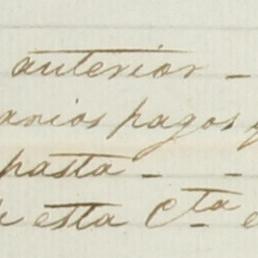 anterior -
anios pagos y
pasta - -
de esta Cta e